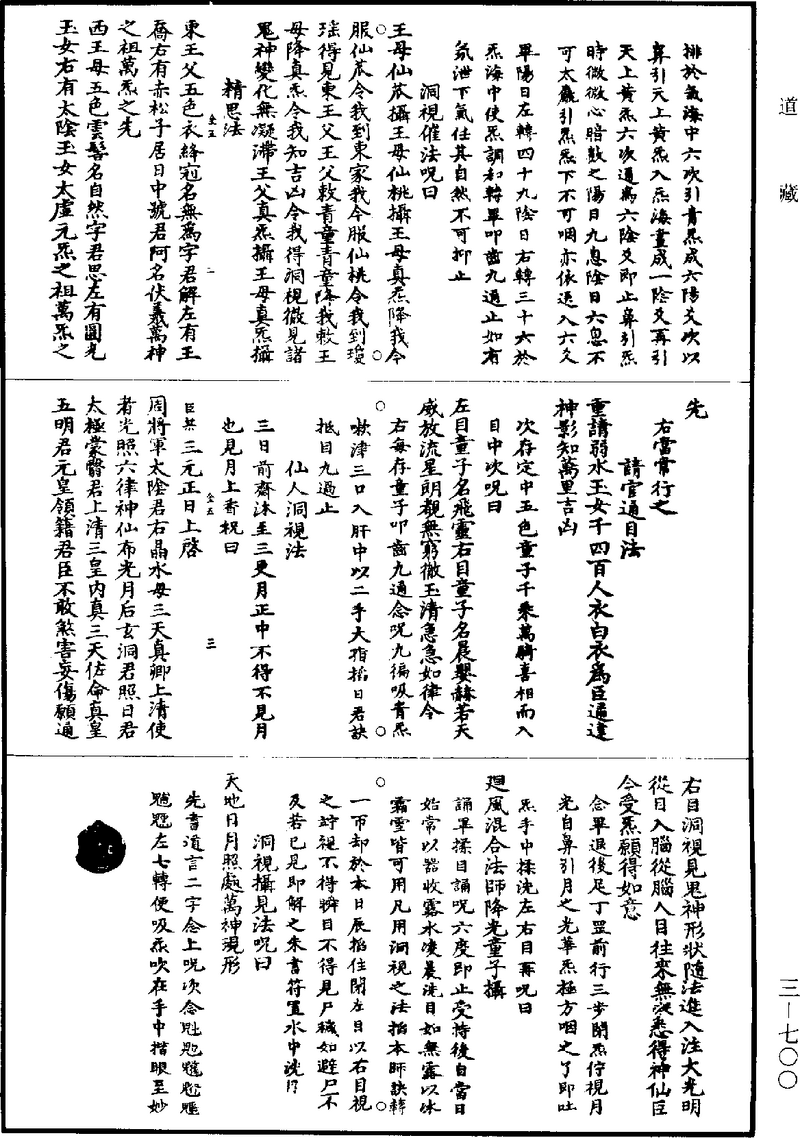 道藏
三—七〇〇
排於氣海中六次引青炁成六陽爻次以
鼻引天上黃炁入炁海畫成一陰爻再引
天上黃炁六次通為六陰爻即止鼻引炁
時微微心暗數之陽日九息陰日六息不
可太麤引炁炁下不可咽亦依送入六爻
畢陽日左轉四十九陰日右轉三十六於
炁海中使炁調和轉畢叩齒九通止如有
氣泄下氣任其自然不可抑止
洞視催法呪曰
王母仙苽攝王母仙桃攝王母真炁降我今
服仙苽令我到東家我今服仙桃令我到瓊
瑤得見東王父王父敕青童青童降我敕王
母降真炁令我知吉凶令我得洞視徹見諸
鬼神變化無凝滯王父真炁攝王母真炁攝
精思法
東王父五色衣絳冠名無為字君解左有王
喬右有赤松子居日中號君阿名伏羲萬神
之祖萬炁之先
西王母五色雲髻名自然字君思左有圓光
玉女右有太陰玉女太虛元炁之祖萬炁之
先
右當常行之
請官通目法
重請弱水玉女千四百人衣白衣為臣通達
神影知萬里吉凶
次存定中五色童子千乘萬騎喜相而入
目中次呪曰
左目童子名飛靈右目童子名晨嬰赫若天
威放流星朗覩無窮徹玉清急急如律令
右每存童子叩齒九通念呪九徧吸青炁
嗽津三口入肝中以二手大指掐日君訣
抵目九過止
仙人洞視法
三日前齋沐至三更月正中不得不見月
也見月上香祝曰
臣某三元正日上啓
周將軍太陰君右晶水母三天真卿上清使
者光照六律神仙布光月后玄洞君照日君
太極蒙翳君上清三皇內真三天佐命真皇
五明君元皇領籍君臣不敢煞害妄傷願通
右目洞視見鬼神形狀隨法進入注大光明
從目入腦從腦入目往來無凝悉得神仙臣
今受炁願得如意
念畢退後足丁罡前行三步閉炁佇視月
光自鼻引月之光華炁極方咽之了即吐
炁手中揉洗左右目再呪曰
廻風混合法師降光童子攝
誦畢揉目誦呪六度即止受持後自當日
始常以器收露水凌晨洗目如無露以冰
霜雪皆可用凡用洞視之法掐本師訣轉
一帀却於本日辰掐住閉左目以右目視
之竚視不得瞬目不得見尸穢如避尸不
及若已見即解之朱書符置水中洗目
洞視攝見法呪曰
天地日月照處萬神現形
先書道言二字念上呪次念
左七轉便吸炁吹在手中揩眼至妙